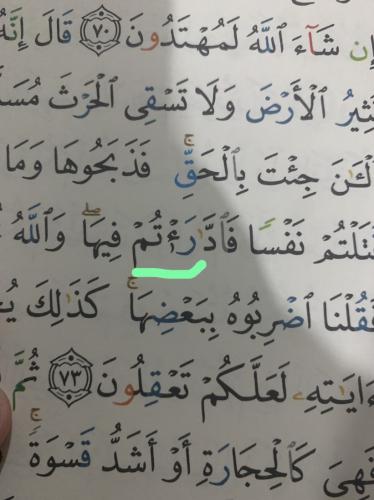 إِن شَآءَ ٱللَّهُ لَمُهۡتَدُونَ ٧٠ قَالَ إِنَّهُۥ
تُثِيرُ ٱلۡأَرۡضَ وَلَا تَسۡقِي ٱلۡحَرۡثَ
ٱلۡـَٰٔنَ جِئۡتَ بِٱلۡحَقِّۚ فَذَبَحُوهَا وَمَا
قَتَلۡتُمۡ نَفۡسٗا فَٱدَّٰرَٰٔتُمۡ فِيهَاۖ وَٱللَّهُ
فَقُلۡنَا ٱضۡرِبُوهُ بِبَعۡضِهَاۚ كَذَٰلِكَ
ءَايَٰتِهِۦ لَعَلَّكُمۡ تَعۡقِلُونَ ٧٣ ثُمَّ
فَهِيَ كَٱلۡحِجَارَةِ أَوۡ أَشَدُّ قَسۡوَةٗۚ